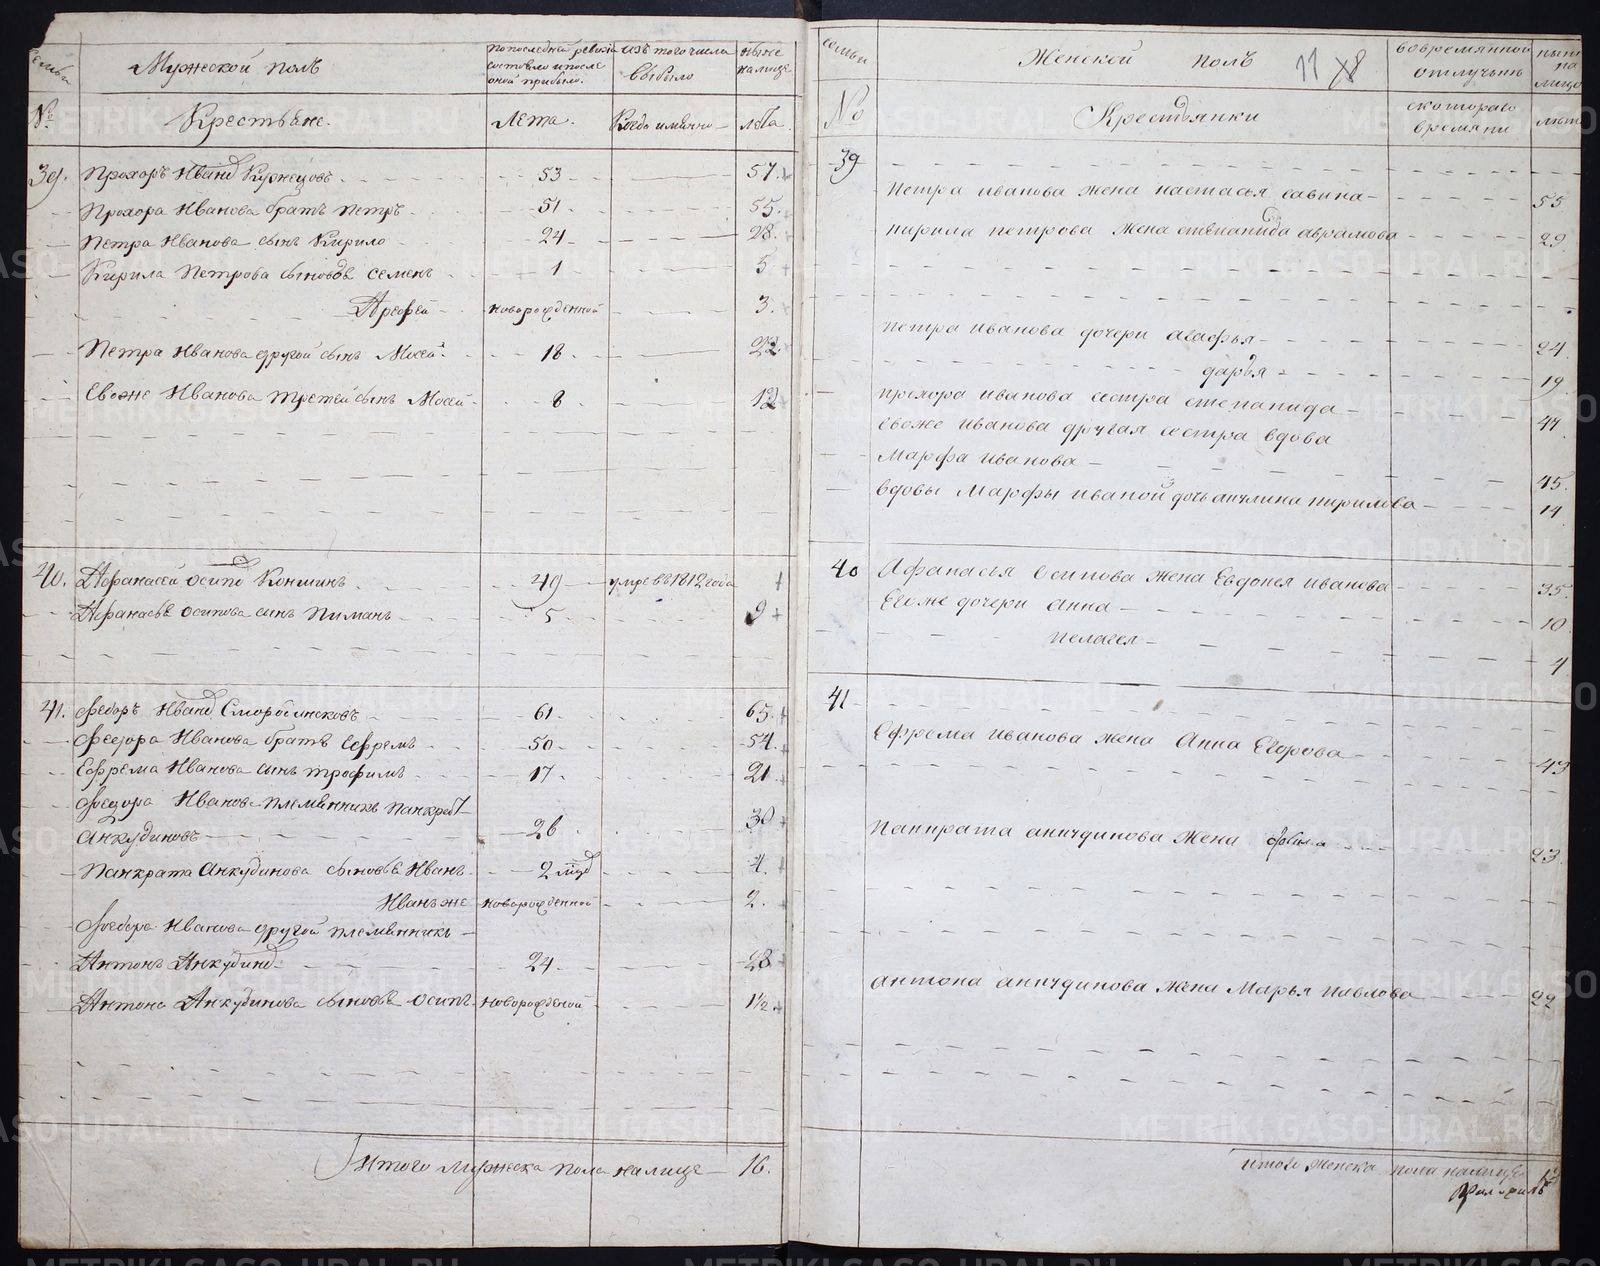 семьи
Мужеской полъ
по последней ревизи
состояло и после
оной прибыло.
изъ того числа
выбыло
ныне
на лице
№
Крестьяне.
Лета.
Когда именно
лета.
39. Прохоръ Иванд Кузнецовъ 53 57.
Прохора Иванова братъ Петръ 51. 55.
Петра Иванова сынъ Кирило 24 28.
Кирила Петрова сыновье Семенъ 1 5
Арефей новорожденной 3.
Петра Иванова другой сынъ Мосей 18. 22.
Евоже Иванова третей сынъ Мосей 8 12
40. Афанасей Осипо Коншинъ 49 умре въ 1812 года
Афанасье Осипова сынъ Пиманъ 5 9
41. Федоръ Иванд 61 65.
Федора Иванова братъ Ефремъ 50 54.
Ефрема Иванова сынъ Трофимъ 17. 21
Федора Иванова племянникъ Панкрат
Анкудиновъ 26 30
Панкрата Анкудинова сыновье Иванъ 2 4.
Иванъ же новорожденной 2.
Федора Иванова другой племянникъ
Антонъ Анкудинд 24 28
Антона Анкудинова сыновье Осипъ новорожденой 1½
Итого мужеска пола на лице 16.
семьи
Женской полъ
11
во временной
отлучьке
ныне
на
лицо
№
Крестьянки
с которого
времяни
лета
39
Петра Иванова жена Настасья Савина 55
Кирила Петрова жена Степанида Аврамова 29
Петра Иванова дочери Агафья 24
Дарья 19
Прохора Иванова сестра Степанида 47
Евоже Иванова другая сестра вдова
Марфа Иванова 45.
вдовы Марфы Иваной дочь Акулина Кирилова 14
40 Афанасья Осипова жена Евдокея Иванова 35.
Егоже дочери Анна 10
Пелагея 4
41
Ефрема Иванова жена Анна Егорова 43
Панкрата Анкудинова жена 23
Антона Анкудинова жена Марья Павлова 22
Итого женска пола на лице 12
METRIKI.GASO-URAL.RU